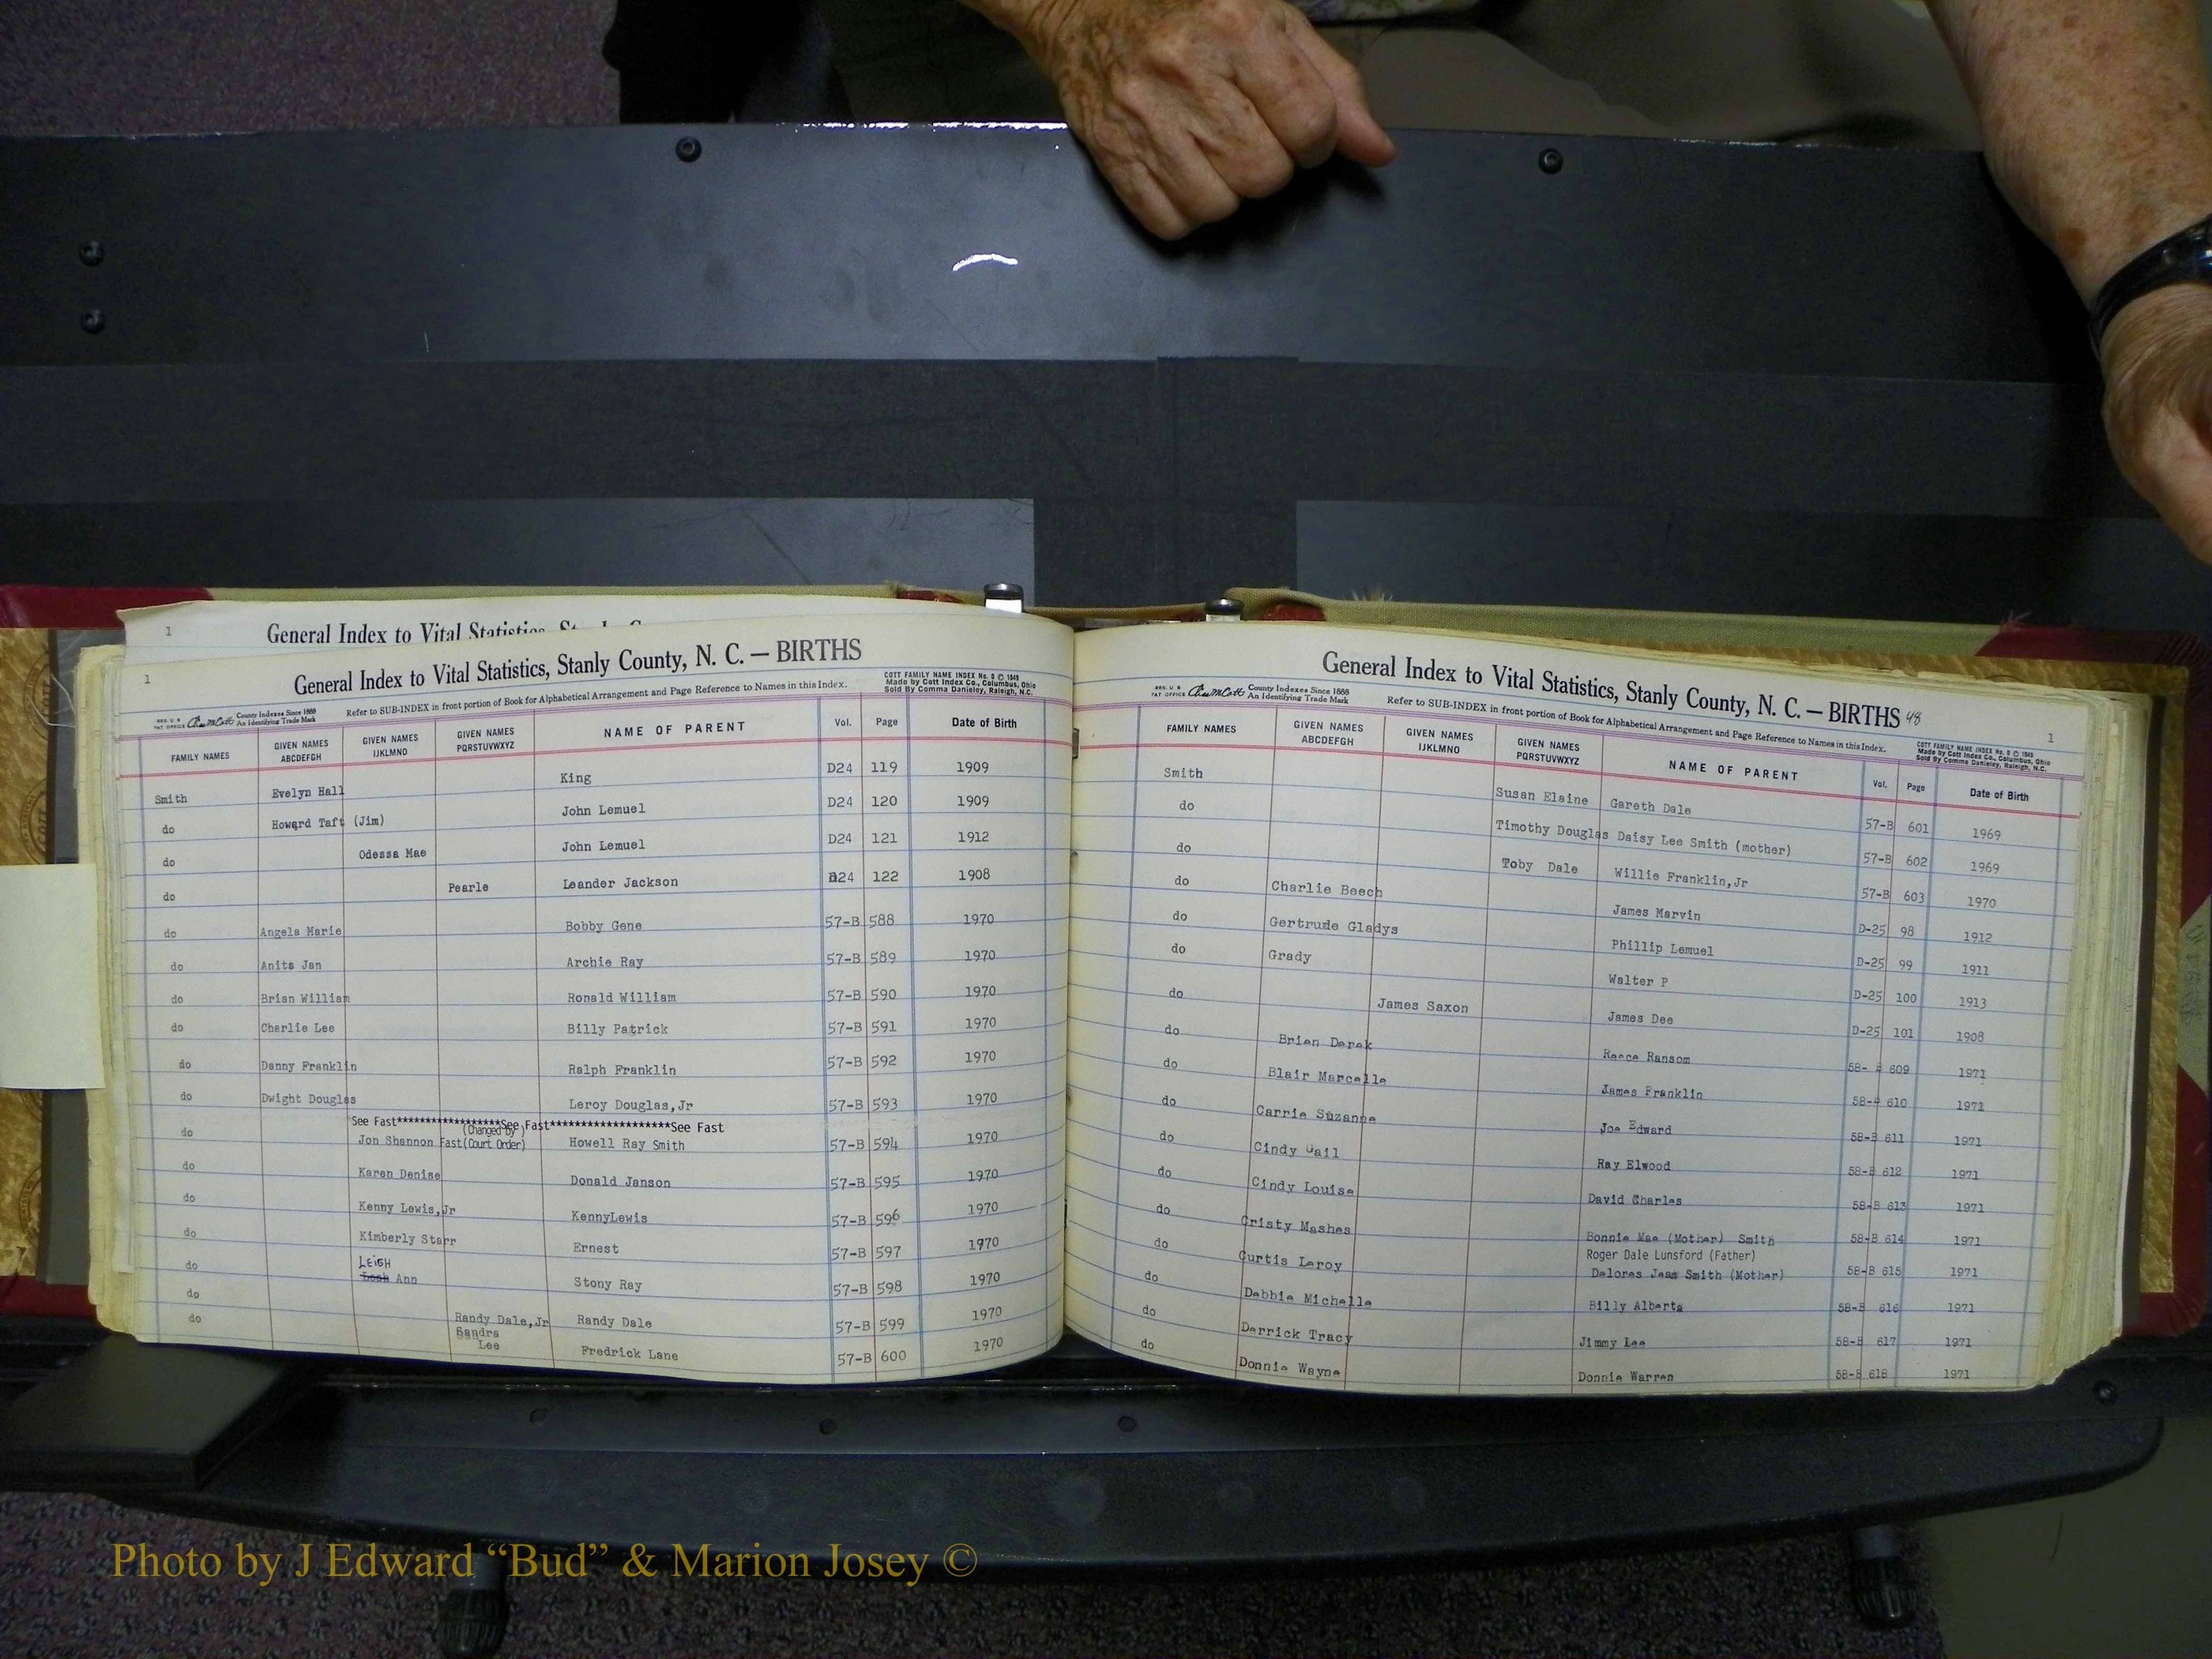 1
General Index to Vital Statistics, St
1
General Index to Vital Statistics, Stanly County, N. C. — BIRTHS
REG. U S PAT OFFICE County Indexes Since 1888 An Identifying Trade Mark
Refer to SUB-INDEX in front portion of Book for Alphabetical Arrangement and Page Reference to Names in this Index.
COTT FAMILY NAME INDEX No. 8 © 1949
Made by Cott Index Co., Columbus, Ohio
Sold By Comma Danieley, Raleigh, N.C.
FAMILY NAMES GIVEN NAMES ABCDEFGH GIVEN NAMES IJKLMNO GIVEN NAMES PQRSTUVWXYZ NAME OF PARENT Vol. Page Date of Birth
Smith Evelyn Hall King D24 119 1909
do Howard Taft (Jim) John Lemuel D24 120 1909
do Odessa Mae John Lemuel D24 121 1912
do Pearle Leander Jackson D24 122 1908
do Angela Marie Bobby Gene 57-B 588 1970
do Anita Jan Archie Ray 57-B 589 1970
do Brian William Ronald William 57-B 590 1970
do Charlie Lee Billy Patrick 57-B 591 1970
do Danny Franklin Ralph Franklin 57-B 592 1970
do Dwight Douglas Leroy Douglas,Jr 57-B 593 1970
See Fast******************See Fast*********************See Fast
(Changed by)
do Jon Shannon Fast(Court Order) Howell Ray Smith 57-B 594 1970
do Karen Denise Donald Janson 57-B 595 1970
do Kenny Lewis,Jr KennyLewis 57-B 596 1970
do Kimberly Starr Ernest 57-B 597 1970
LEIGH
do Ann Stony Ray 57-B 598 1970
do Randy Dale,Jr Randy Dale 57-B 599 1970
do Sandra Lee Fredrick Lane 57-B 600 1970
General Index to Vital Statistics, Stanly County, N. C. — BIRTHS 48
1
REG. U S PAT OFFICE County Indexes Since 1888 An Identifying Trade Mark
Refer to SUB-INDEX in front portion of Book for Alphabetical Arrangement and Page Reference to Names in this Index.
COTT FAMILY NAME INDEX No. 8 © 1949
Made by Cott Index Co., Columbus, Ohio
Sold By Comma Danieley, Raleigh, N.C.
FAMILY NAMES GIVEN NAMES ABCDEFGH GIVEN NAMES IJKLMNO GIVEN NAMES PQRSTUVWXYZ NAME OF PARENT Vol. Page Date of Birth
Smith Susan Elaine Gareth Dale 57-B 601 1969
do Timothy Douglas Daisy Lee Smith (mother) 57-B 602 1969
do Toby Dale Willie Franklin,Jr 57-B 603 1970
do Charlie Beech James Marvin D-25 98 1912
do Gertrude Gladys Phillip Lemuel D-25 99 1911
do Grady Walter P D-25 100 1913
do James Saxon James Dee D-25 101 1908
do Brian Derek Reece Ransom 58- 609 1971
do Blair Marcelle James Franklin 58- 610 1971
do Carrie Suzanne Joe Edward 58-B 611 1971
do Cindy Gail Ray Elwood 58-B 612 1971
do Cindy Louise David Charles 58-B 613 1971
do Cristy Mashes Bonnie Mae (Mother) Smith 58-B 614 1971
Roger Dale Lunsford (Father)
do Curtis Leroy Delores Jean Smith (Mother) 58-B 615 1971
do Debbie Michelle Billy Alberta 58-B 616 1971
do Derrick Tracy Jimmy Lee 58-B 617 1971
do Donnie Wayne Donnie Warren 58-B 618 1971
Photo by J Edward “Bud” & Marion Josey ©